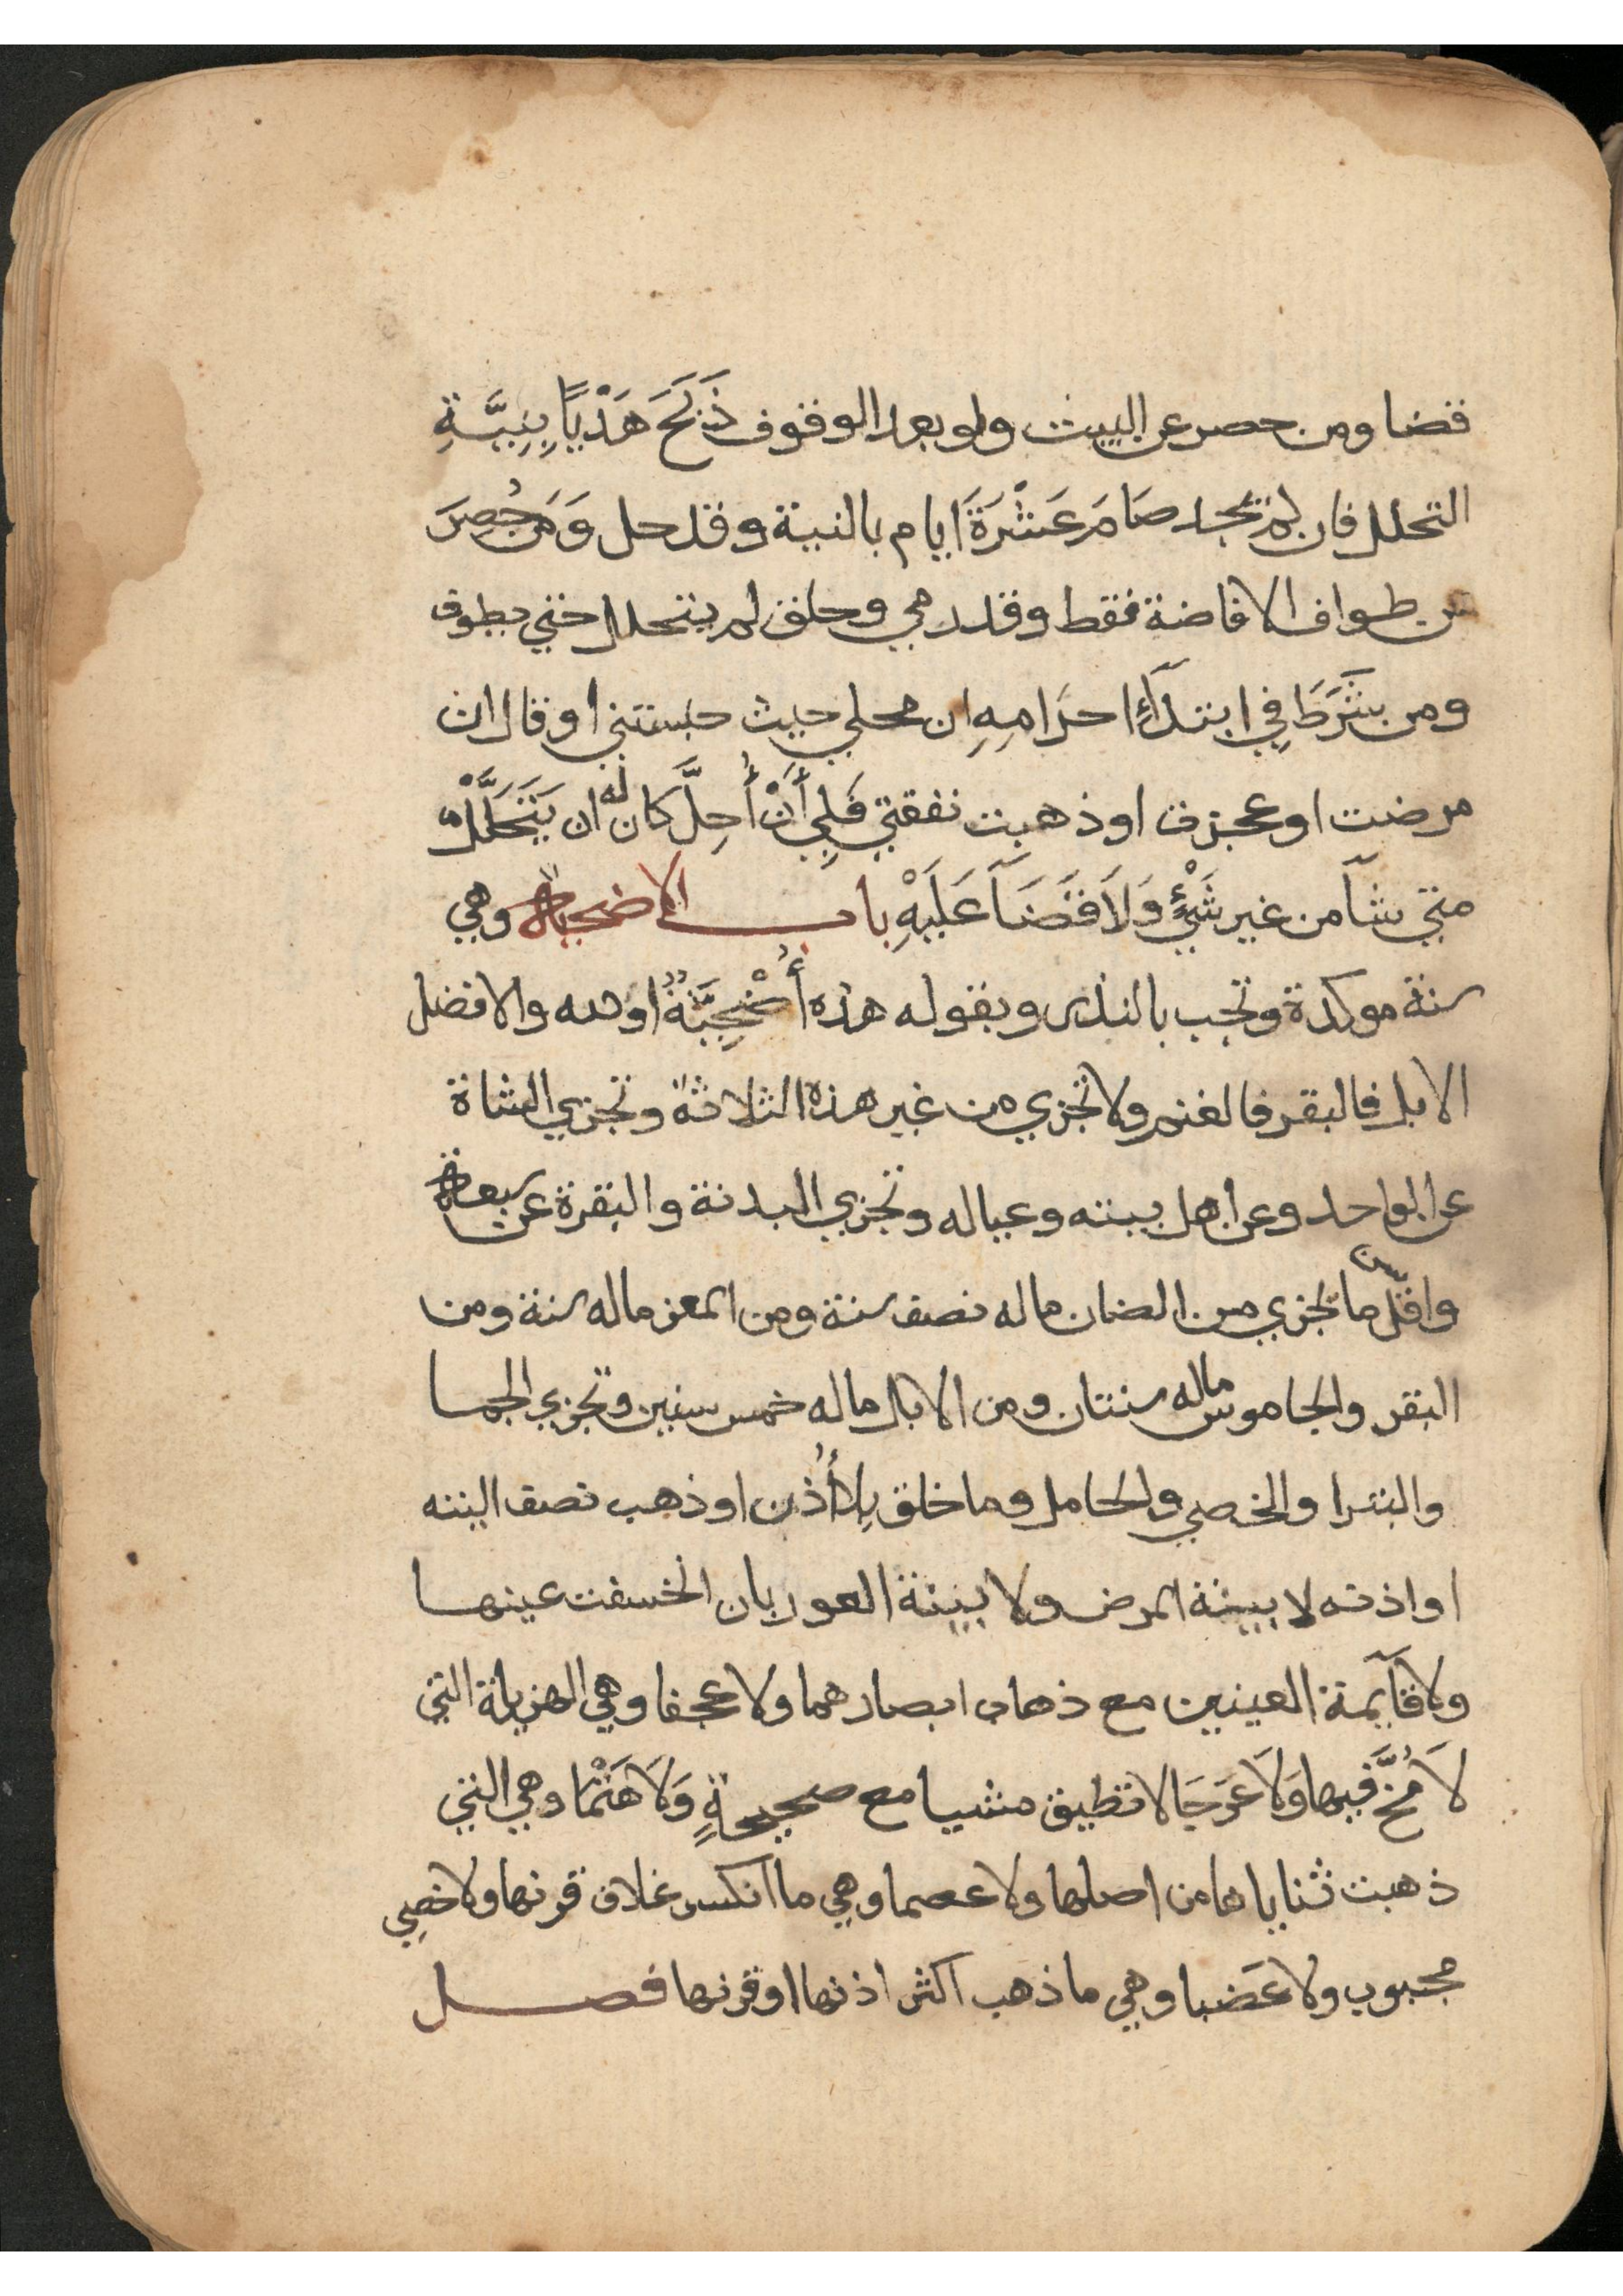 قضا ومن حصر عن البيت ولو بعد الوقوف ذَبَحَ هَدْيًا بِنِيَّةِ
التحلل فان لم يجد صَامَ عَشْرَةَ ايام بالنية وقد حل وَمَن حُصِرَ
عن طواف الافاضة فقط وقد رمي وحلق لم يتحلل حتي يطوف
ومن شَرَطَ فِي ابتدَآءِ احرَامِهِ ان محلي حيث حبستني او قال ان
مرضت او عجزت او ذهبت نفقتي فَلِي أَنْ أُحِلَّ كان له ان يَتَحَلَّلَ
متي شآ من غير شَيْءٍ وَلَا قَضَآ عَلَيْهِ باب الاضحية وهي
سنة موكدة وتجب بالنذر وبقوله هذه أُضْحِيَّةٌ او لله والافضل
الابل فالبقر فالغنم ولا تجزي من غير هذه الثلاثة وتجزي الشاة
عن الواحد وعن أهل بيته وعياله وتجزي البدنة والبقرة عن سبعة
واقل سن ما يجزي من الضان ماله نصف سنة ومن المعز ماله سنة ومن
البقر والجاموس ماله سنتان ومن الابل ماله خمس سنين وتجزي الجما
والبترا والخصي والحامل وما خلق بِلا أُذن او ذهب نصف اليته
او اذنه لا بينة المرض ولا بينة العور بان انخسفت عينها
ولا قآيمة العينين مع ذهاب ابصارهما ولا عجفا وهي الهزيلة التي
لَا مُخَّ فيها وَلَا عَرجَا لا تطيق مشيا مع صحيحةٍ وَلَا هَتْمَا وهي التي
ذهبت ثناياها من اصلها ولا عصما وهي ما انكسر غلاف قرنها ولا خصِي
مجبوب ولا عَضبا وهي ما ذهب اكثر اذنها او قرنها فصل